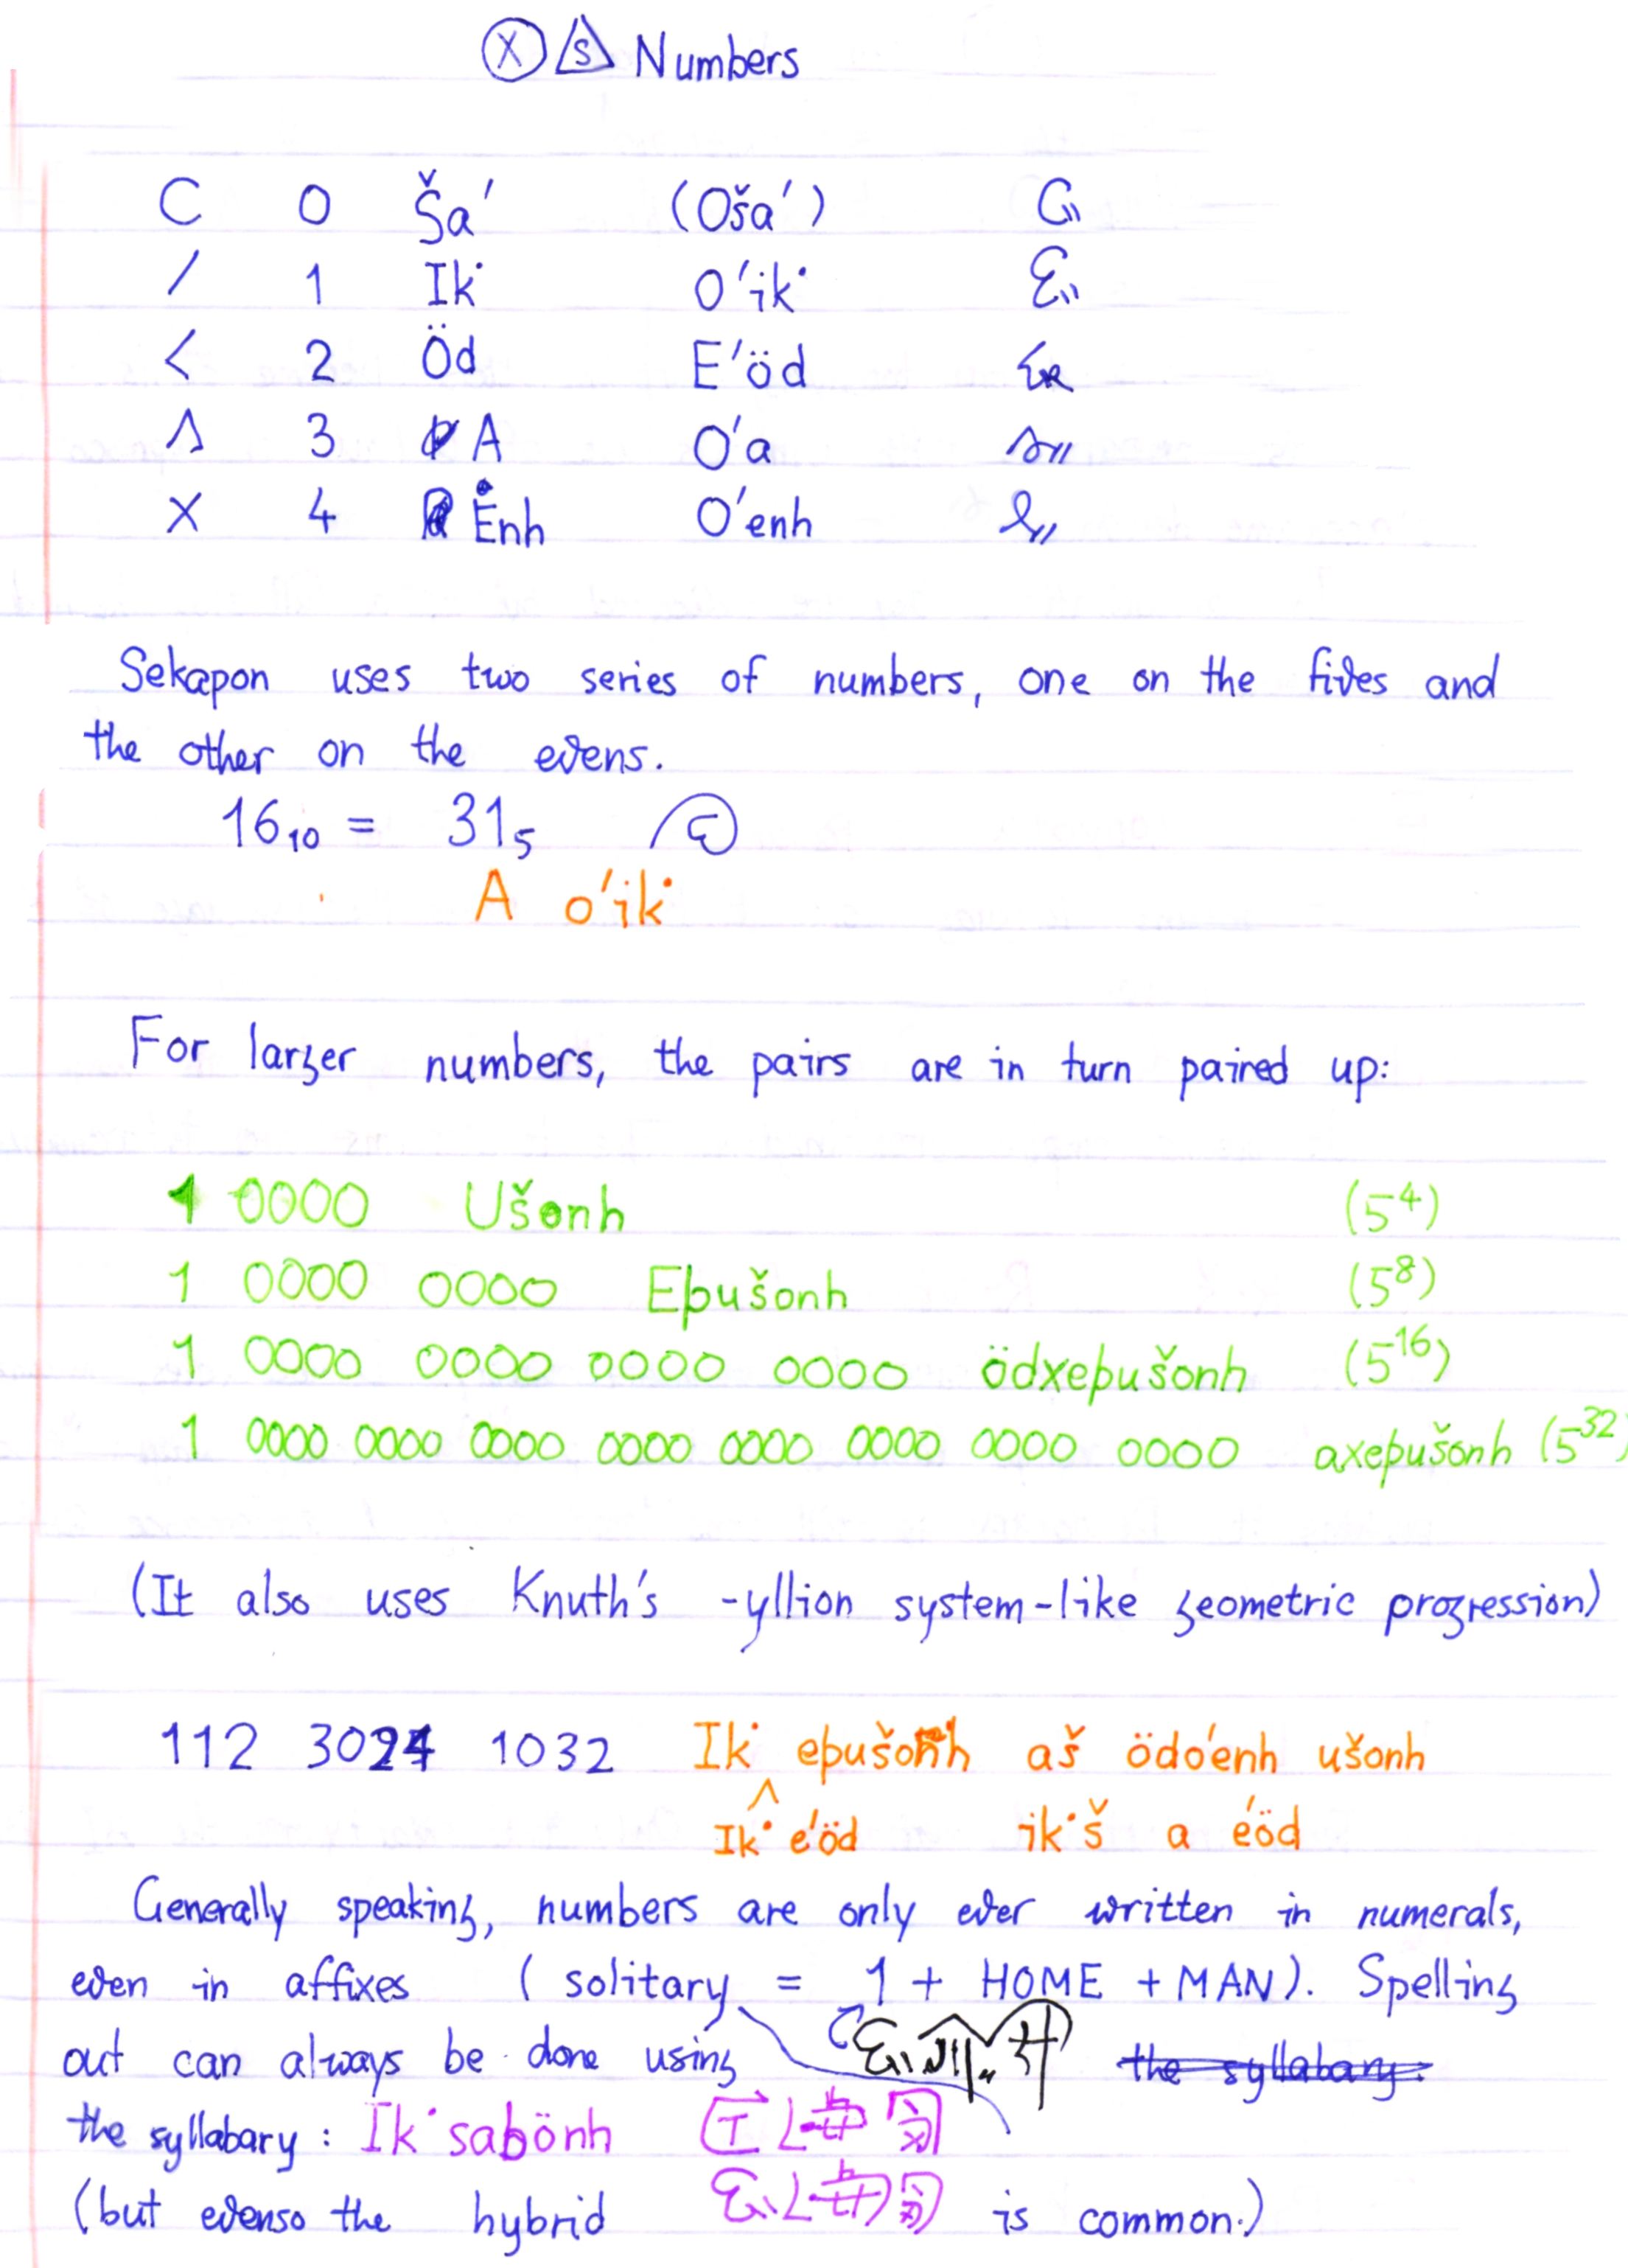 X S Numbers
C 0 Ša' (Oša')
/ 1 Ik˙ O'ik˙
< 2 Öd E'öd
Λ 3 A O'a
X 4 Enh O'enh
Sekapon uses two series of numbers, one on the fives and
the other on the evens.
16₁₀ = 31₅
A o'ik˙
For larger numbers, the pairs are in turn paired up:
1 0000 Ušonh (5⁴)
1 0000 0000 Eþušonh (5⁸)
1 0000 0000 0000 0000 ödxeþušonh (5¹⁶)
1 0000 0000 0000 0000 0000 0000 0000 0000 axeþušonh (5³²)
(It also uses Knuth's -yllion system-like geometric progression)
112 3024 1032 Ik˙ eþušonh aš ödo'enh ušonh
^
Ik˙ e'öd ik˙š a e'öd
Generally speaking, numbers are only ever written in numerals,
even in affixes (solitary = 1 + HOME + MAN). Spelling
out can always be done using the syllabary.
the syllabary: Ik˙sabönh
(but evenso the hybrid is common.)